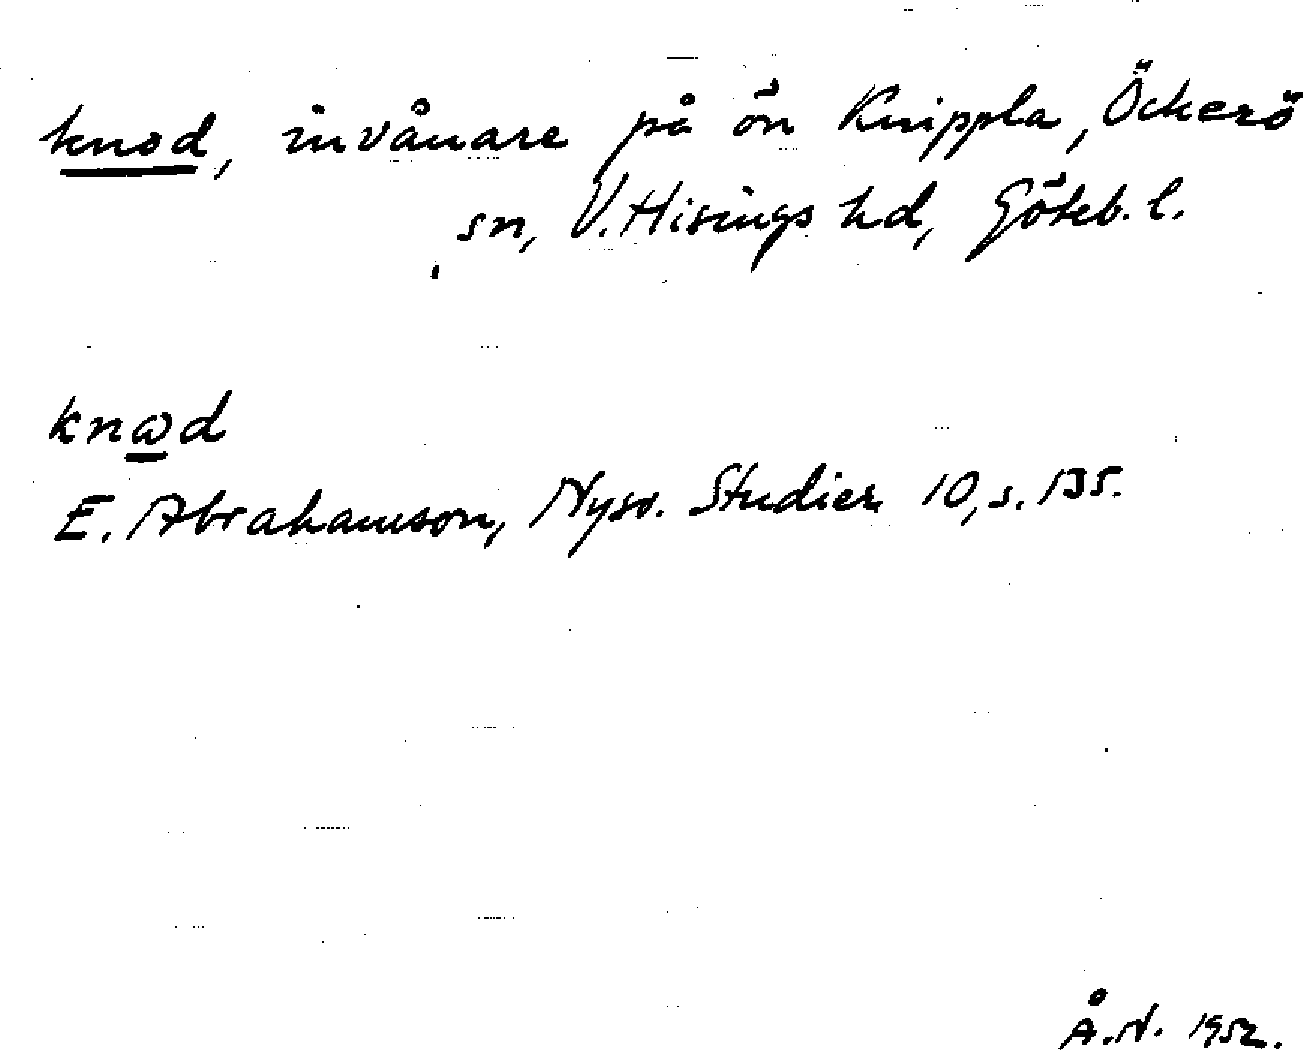 knod, invånare på ön Knippla, Öckerö
sn, V. Hisings hd, Göteb. l.
knωd
E. Abrahamson, Nysv. Studier 10, s. 135.
Å.N. 1952.